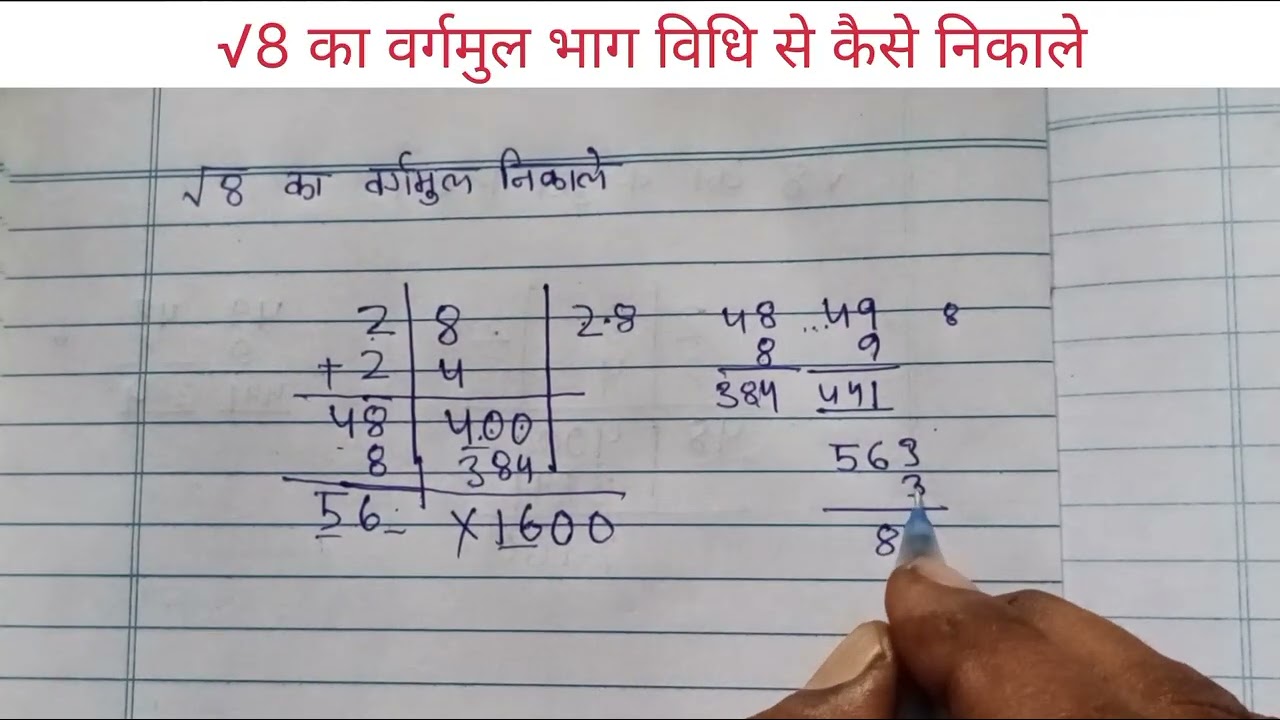 √8 का वर्गमुल भाग विधि से कैसे निकाले
√8 का वर्गमुल निकाले
2 8 2.8 48 ... 49 8
+2 4 8 9
48 400 384 441
8 384 563
56_ ×1600 3
8